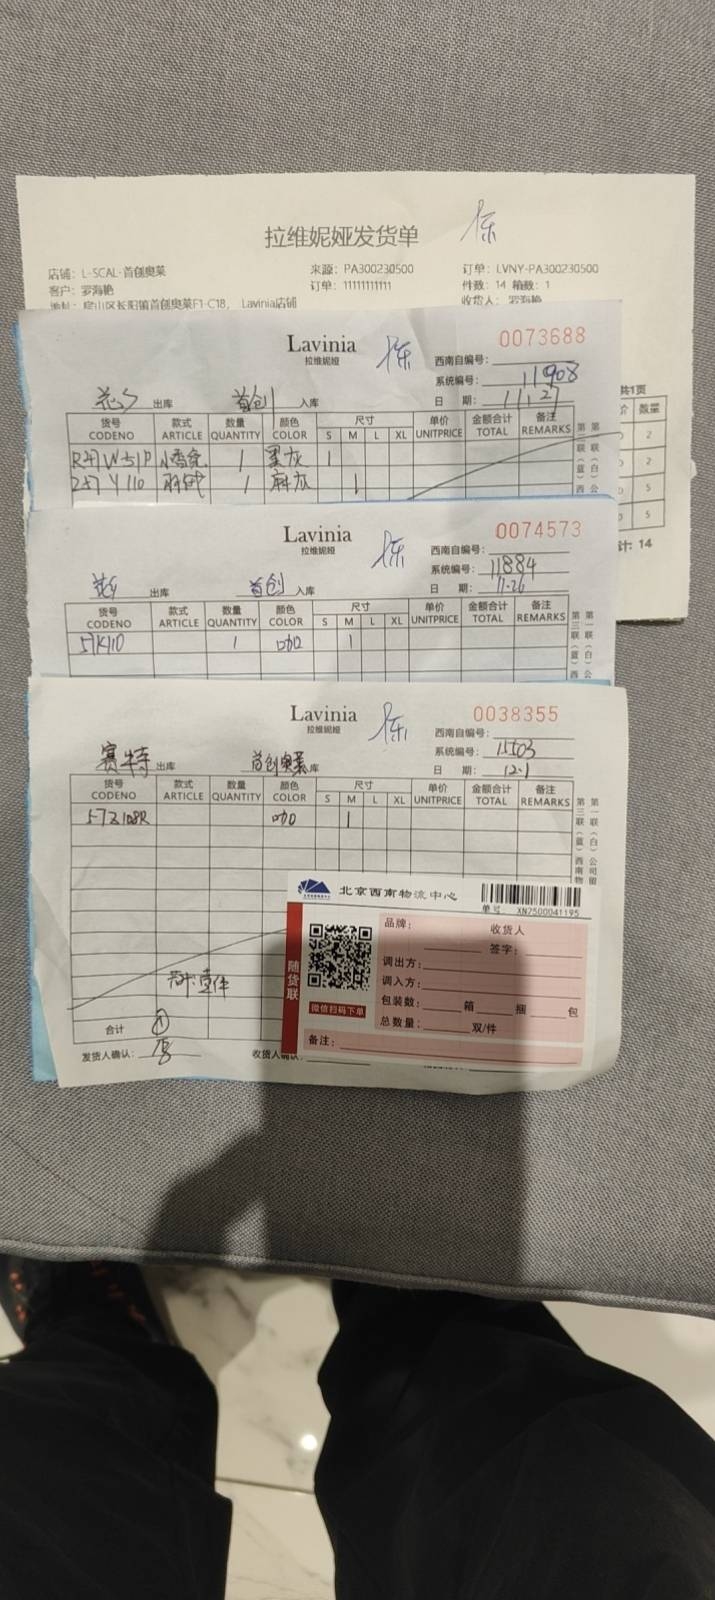 拉维妮娅发货单
店铺：L-SCAL-首创奥莱 来源：PA300230500 订单：LVNY-PA300230500
客户：罗海艳 订单：11111111111 件数：14 箱数：1
地址：房山区长阳镇首创奥莱F1-C18， Lavinia店铺 收货人：罗海艳
共1页
价 数量
2
2
5
5
计：14
Lavinia
拉维妮娅
0073688
西南自编号：
系统编号：11908
出库 首创 入库 日 期：11.27
货号 款式 数量 颜色 尺寸 单价 金额合计 备注
CODENO ARTICLE QUANTITY COLOR S M L XL UNITPRICE TOTAL REMARKS
1 黑灰 1
1 麻灰 1
第一联（白）公
第三联（蓝）西
Lavinia
拉维妮娅
0074573
西南自编号：
系统编号：11884
出库 首创 入库 日 期：11.26
货号 款式 数量 颜色 尺寸 单价 金额合计 备注
CODENO ARTICLE QUANTITY COLOR S M L XL UNITPRICE TOTAL REMARKS
57K110 1 咖 1
第一联（白）公
第三联（蓝）西
Lavinia
拉维妮娅
0038355
西南自编号：
系统编号：11503
赛特 出库 首创奥莱 库 日 期：12.1
货号 款式 数量 颜色 尺寸 单价 金额合计 备注
CODENO ARTICLE QUANTITY COLOR S M L XL UNITPRICE TOTAL REMARKS
咖 1
第一联（白）公司留
第三联（蓝）西南物
合计 ①
发货人确认：
收货人确认：
北京西南物流中心
单号： XN7500041195
随货联
微信扫码下单
品牌： 收货人
签字：
调出方：
调入方：
包装数： 箱 捆 包
总数量： 双/件
备注：